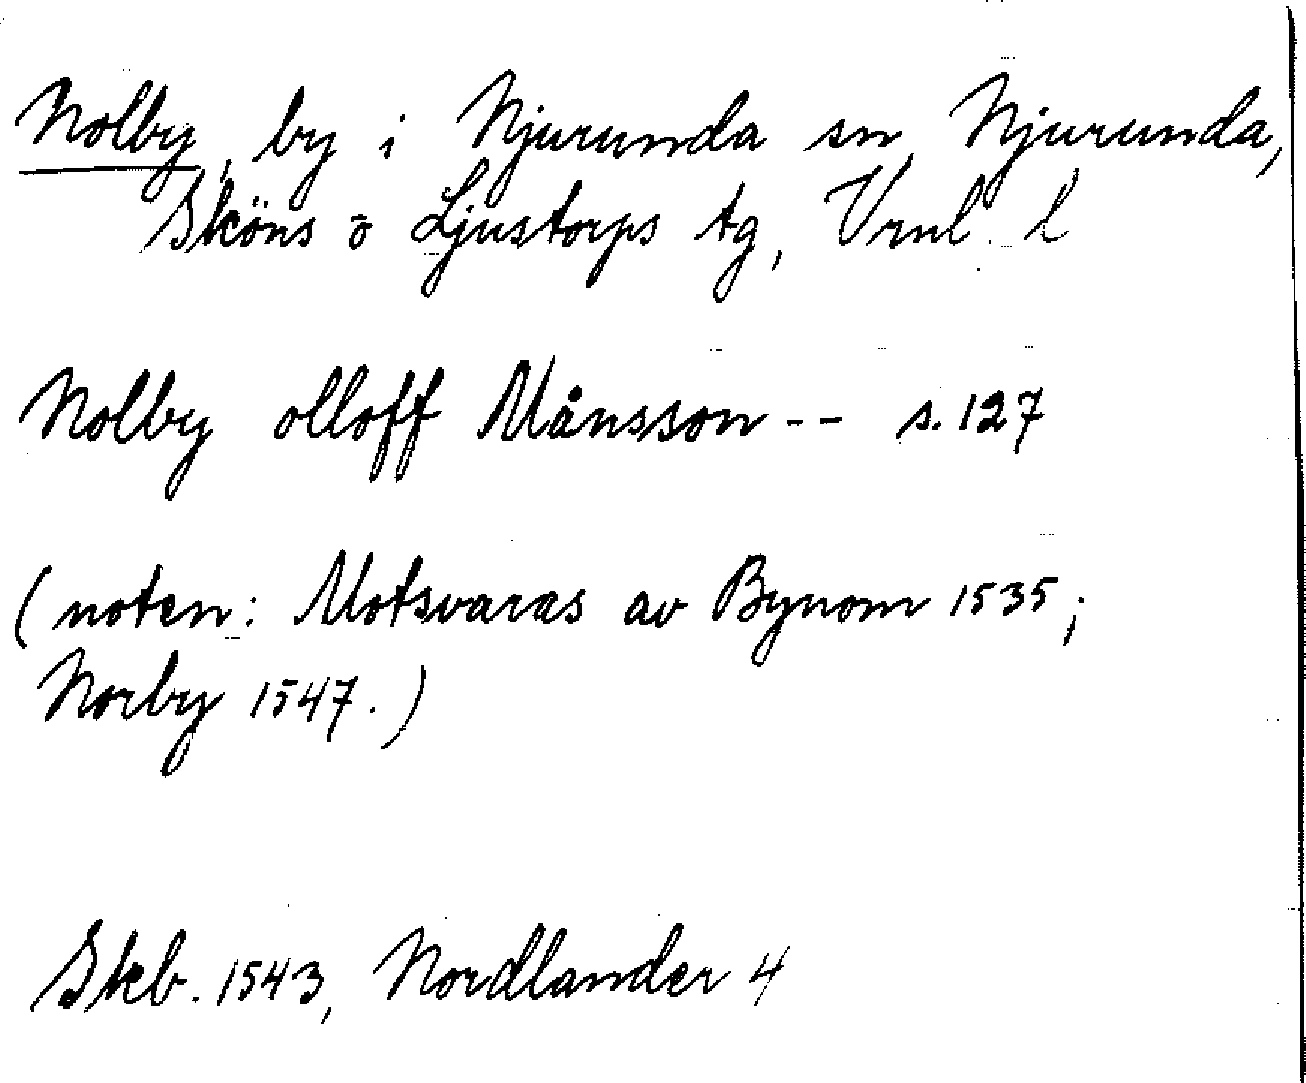 Nolby, by i Njurunda sn, Njurunda,
Sköns o Ljustorps tg, Vrnl. l
Nolby olloff Månsson -- s. 127
(noten: Motsvaras av Bynom 1535;
Norby 1547.)
Skb. 1543, Nordlander 4